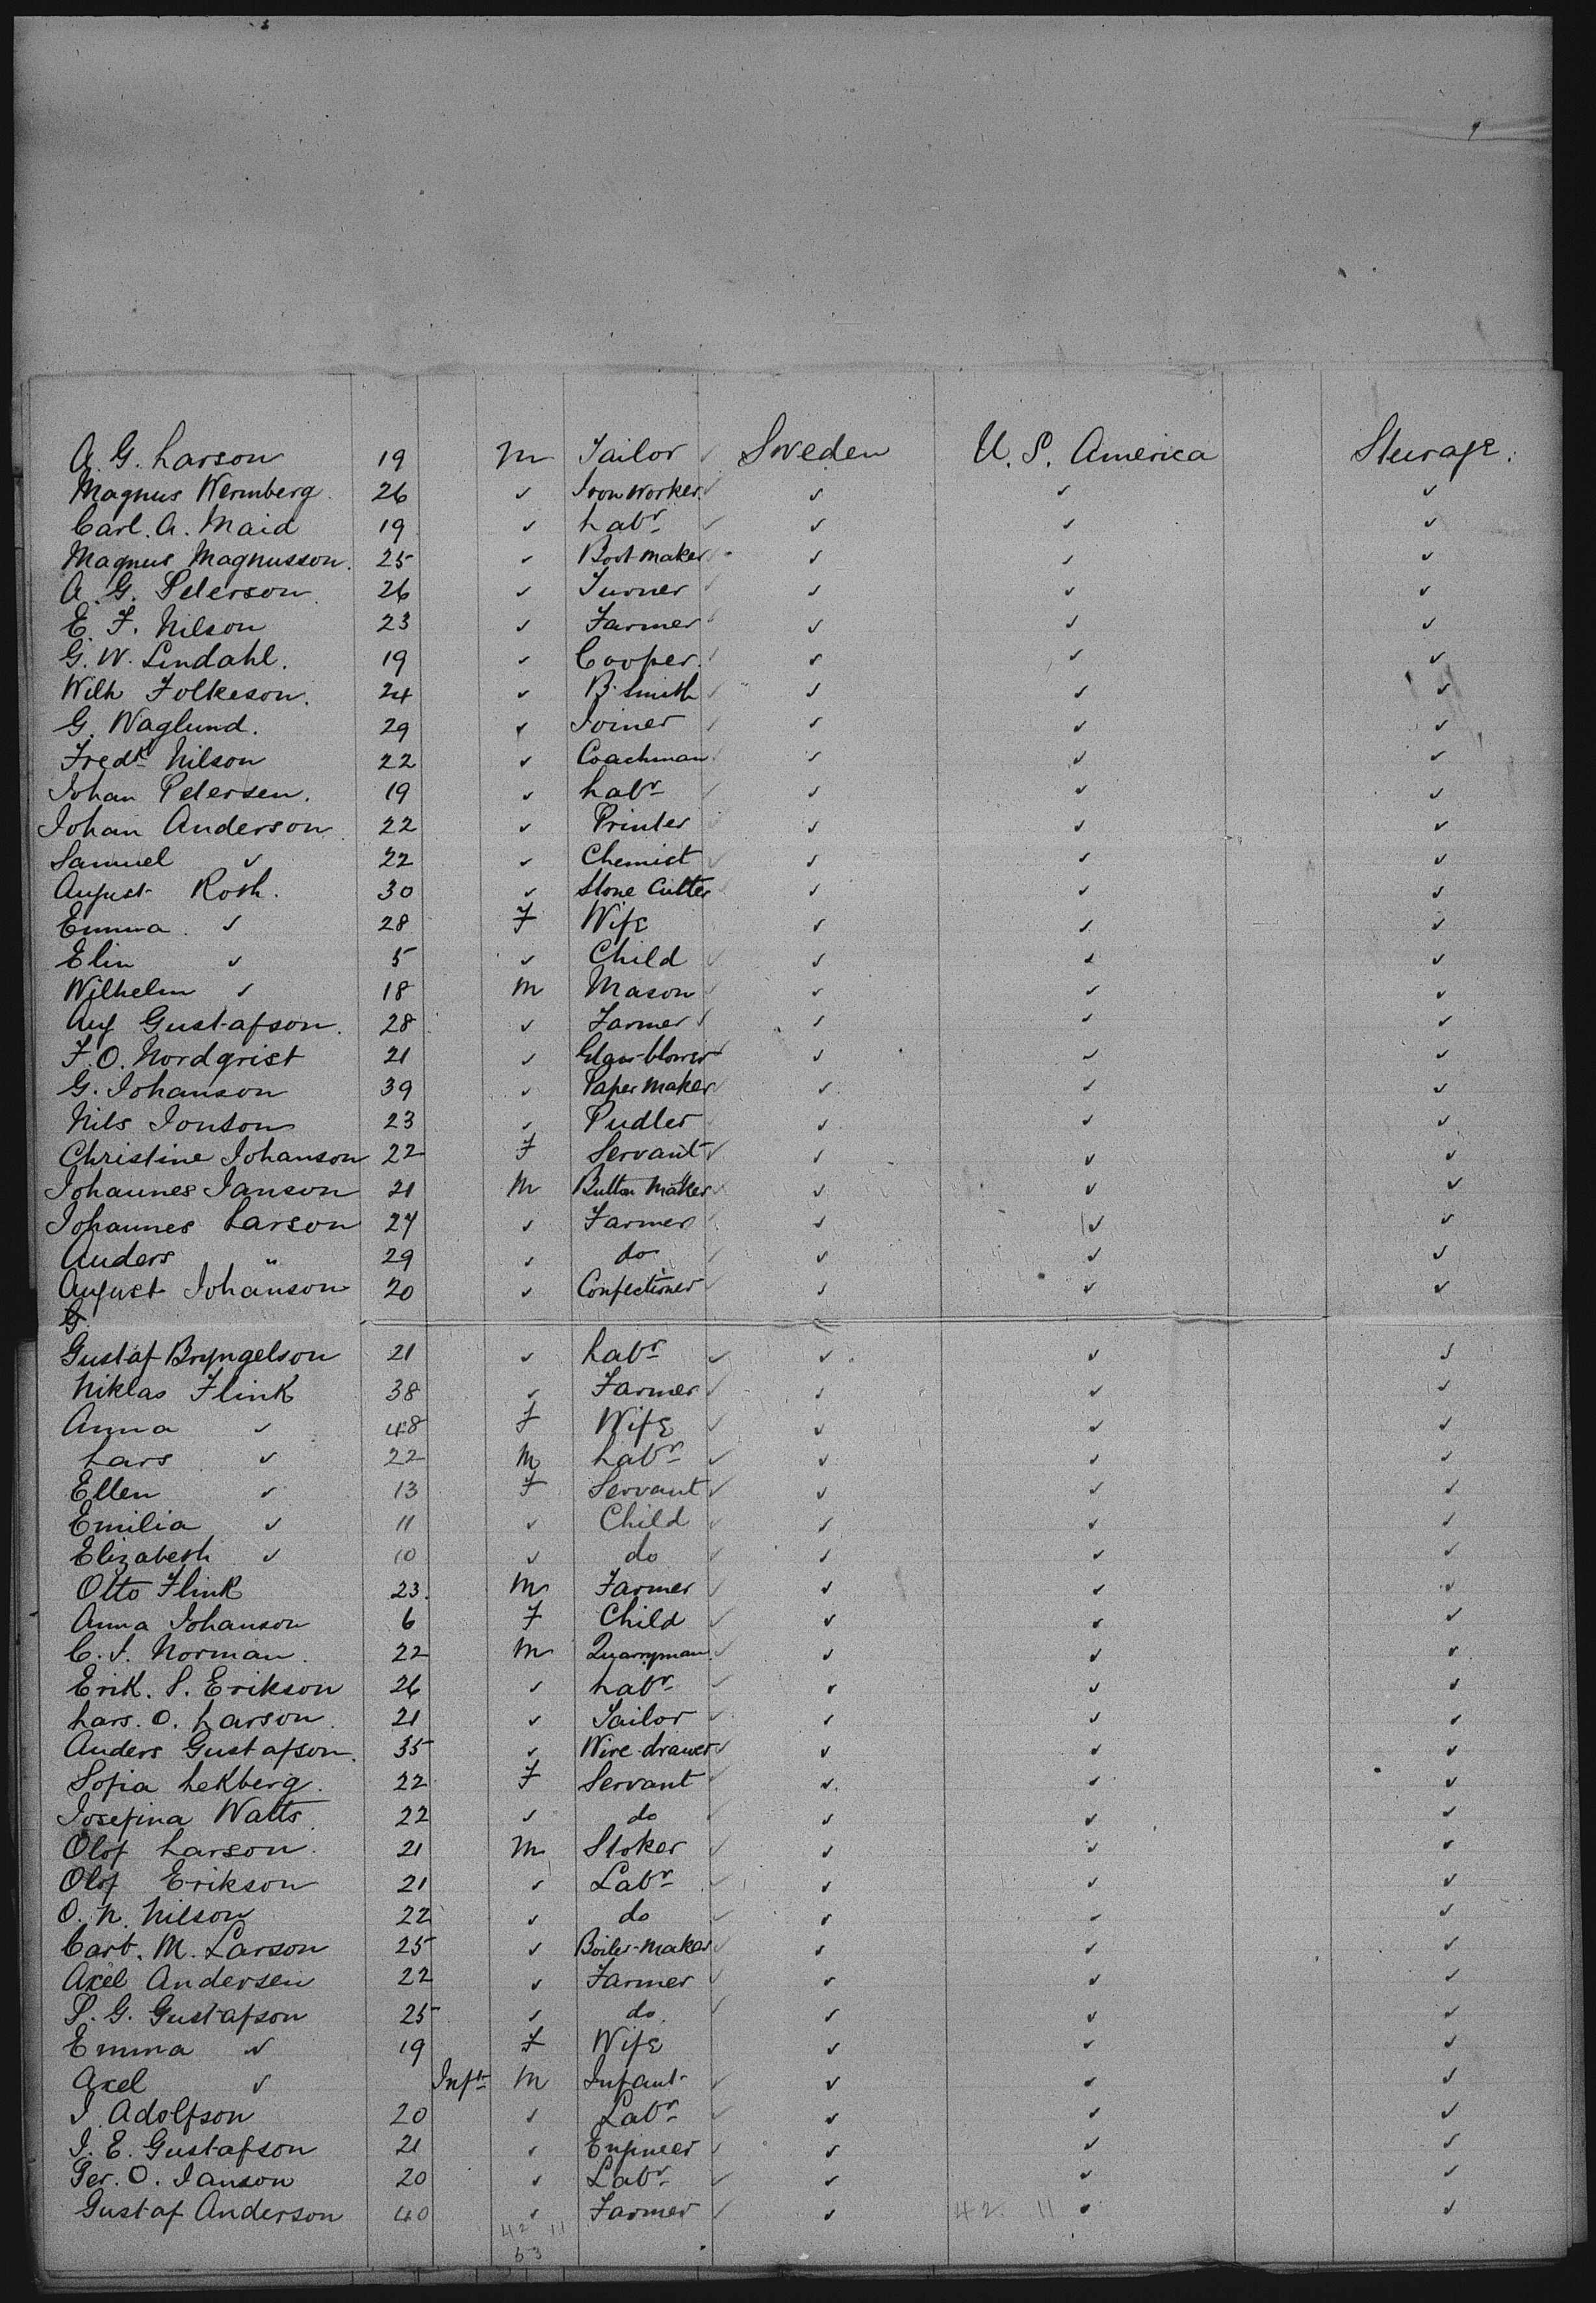 A. G. Larson 19 M Tailor ✓ Sweden U. S. America Steerage.
Magnus Wermberg. 26 ✓ Iron Worker ✓ ✓ ✓ ✓
Carl. A. Maid 19 ✓ Labr ✓ ✓ ✓ ✓
Magnus Magnusson. 25 ✓ Boot maker ✓ ✓ ✓
A. G. Peterson 26 ✓ Turner ✓ ✓ ✓ ✓
E. F. Nilson 23 ✓ Farmer ✓ ✓ ✓ ✓
G. W. Lindahl. 19 ✓ Cooper. ✓ ✓ ✓ ✓
Wilh Folkeson. 24 ✓ B. Smith ✓ ✓ ✓ ✓
G. Waglund. 29 ✓ Joiner ✓ ✓ ✓ ✓
Fredk Nilson 22 ✓ Coachman ✓ ✓ ✓ ✓
Johan Petersen. 19 ✓ Labr ✓ ✓ ✓ ✓
Johan Anderson 22 ✓ Printer ✓ ✓ ✓ ✓
Samuel ✓ 22 ✓ Chemist ✓ ✓ ✓ ✓
August Roth. 30 ✓ Stone Cutter ✓ ✓ ✓
Emma. ✓ 28 F Wife ✓ ✓ ✓
Elin ✓ 5 ✓ Child ✓ ✓ ✓ ✓
Wilhelm ✓ 18 M Mason ✓ ✓ ✓ ✓
Aug Gustafson. 28 ✓ Farmer ✓ ✓ ✓ ✓
F. O. Nordqrist 21 ✓ Glass-blower ✓ ✓ ✓ ✓
G. Johanson 39 ✓ Paper Maker ✓ ✓ ✓ ✓
Nils Jonson 23 ✓ Pudler ✓ ✓ ✓ ✓
Christine Johanson 22 F Servant ✓ ✓ ✓ ✓
Johannes Janson 21 M Button Maker ✓ ✓ ✓ ✓
Johannes Larson 24 ✓ Farmer ✓ ✓ ✓ ✓
Anders " 29 ✓ do ✓ ✓ ✓ ✓
August Johanson 20 ✓ Confectioner ✓ ✓ ✓ ✓
G
Gustaf Bryngelson 21 ✓ Labr ✓ ✓ ✓ ✓
Niklas Flink 38 ✓ Farmer ✓ ✓ ✓ ✓
Anna ✓ 48 F Wife ✓ ✓ ✓ ✓
Lars ✓ 22 M Labr ✓ ✓ ✓ ✓
Ellen ✓ 13 F Servant ✓ ✓ ✓ ✓
Emilia ✓ 11 ✓ Child ✓ ✓ ✓ ✓
Elizabeth ✓ 10 ✓ do ✓ ✓ ✓ ✓
Otto Flink 23. M Farmer ✓ ✓ ✓ ✓
Anna Johanson 6 F Child ✓ ✓ ✓ ✓
C. J. Norman. 22 M Quarryman ✓ ✓ ✓ ✓
Erik. S. Erikson 26 ✓ Labr ✓ ✓ ✓ ✓
Lars. O. Larson. 21 ✓ Tailor ✓ ✓ ✓ ✓
Anders Gustafson. 35 ✓ Wire-drawer ✓ ✓ ✓ ✓
Sofia Lekberg. 22 F Servant ✓ ✓ ✓ ✓
Josefina Watts. 22 ✓ do ✓ ✓ ✓ ✓
Olof Larson. 21 M Stoker ✓ ✓ ✓ ✓
Olof Erikson 21 ✓ Labr ✓ ✓ ✓ ✓
O. N. Nilson 22 ✓ do ✓ ✓ ✓ ✓
Carl. M. Larson 25 ✓ Boiler-Maker ✓ ✓ ✓ ✓
Axel Andersen 22 ✓ Farmer ✓ ✓ ✓ ✓
P. G. Gustafson 25 ✓ do. ✓ ✓ ✓ ✓
Emma ✓ 19 F Wife ✓ ✓ ✓
Axel ✓ Inft M Infant ✓ ✓ ✓ ✓
J. Adolfson 20 ✓ Labr ✓ ✓ ✓ ✓
J. E. Gustafson 21 ✓ Engineer ✓ ✓ ✓ ✓
Per. O. Janson 20 ✓ Labr ✓ ✓ ✓ ✓
Gustaf Anderson 40 ✓ Farmer ✓ ✓ 42 11 ✓ ✓
42 11
53